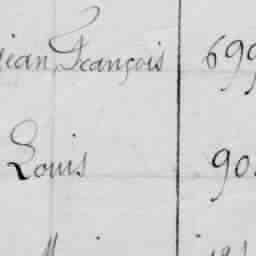 Jean François 699
Louis 90